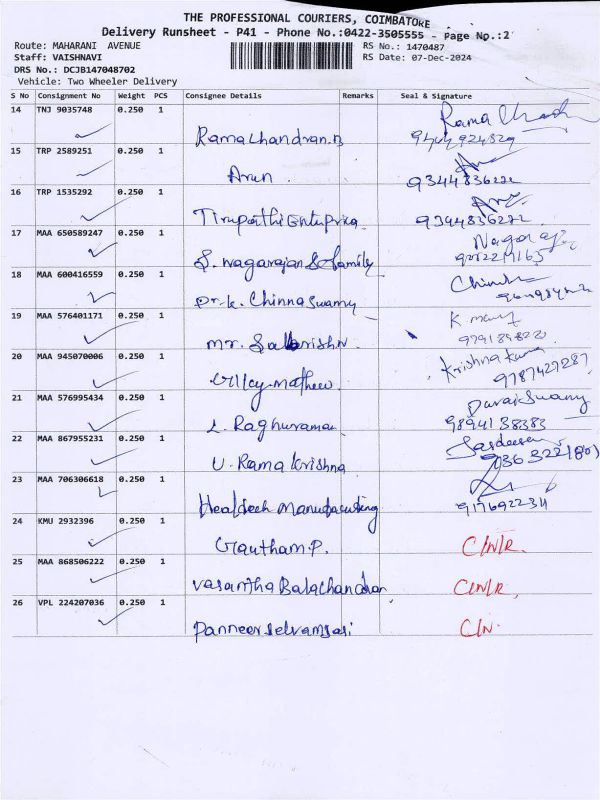 THE PROFESSIONAL COURIERS, COIMBATORE
Delivery Runsheet - P41 - Phone No.:0422-3505555 - Page No.:2
Route: MAHARANI AVENUE
RS No.: 1470487
Staff: VAISHNAVI
RS Date: 07-Dec-2024
DRS No.: DCJB147048702
Vehicle: Two Wheeler Delivery
S No Consignment No Weight PCS Consignee Details Remarks Seal & Signature
14 TNJ 9035748 0.250 1
Ramachandran.B
15 TRP 2589251 0.250 1
Arun 9344836222
16 TRP 1535292 0.250 1
9344836222
17 MAA 650589247 0.250 1 Nagaraj
S. Nagarajan & family
18 MAA 600416559 0.250 1
Dr. K. Chinnaswamy
19 MAA 576401171 0.250 1
Mr.
20 MAA 945070006 0.250 1 Krishna
9787427287
21 MAA 576995434 0.250 1 Duraiswamy
L. Raghuraman 98941 38383
22 MAA 867955231 0.250 1
U. Rama Krishna
23 MAA 706306618 0.250 1
Healdeeh Manufacturing
24 KMU 2932396 0.250 1
Gautham.P. C/NLR.
25 MAA 868506222 0.250 1
Vasantha Balachandran C/NLR,
26 VPL 224207036 0.250 1
Panneerselvamsasi C/N.